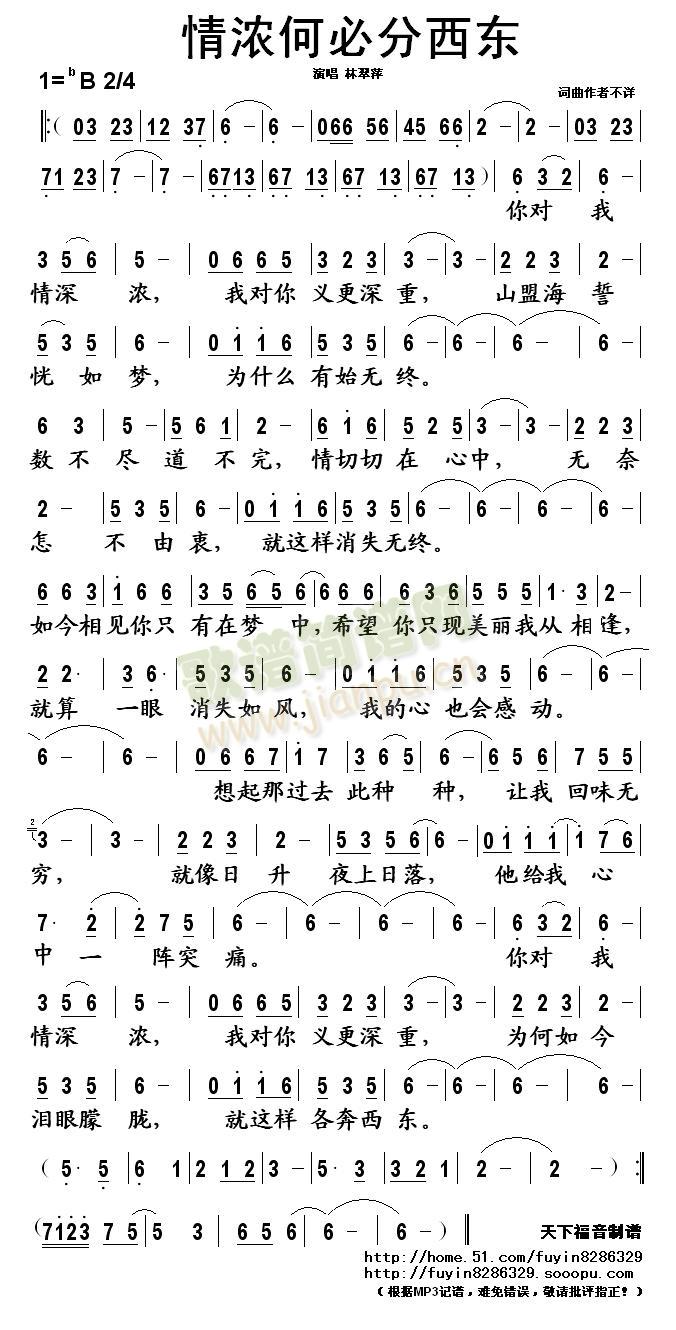 情浓何必分西东
演唱 林翠萍
1=bB 2/4
词曲作者不详
‖:( 03 23 | 12 37 | 6 - | 6 - | 066 56 | 45 66 | 2 - | 2 - | 03 23
71 23 | 7 - | 7 - | 6713 | 67 13 | 67 13 | 67 13 ) | 6 32 | 6 -
你对 我
3 56 | 5 - | 0665 | 323 | 3 - | 3 - | 223 | 2 -
情深 浓, 我对你 义更深 重, 山盟海 誓
535 | 6 - | 0116 | 535 | 6 - | 6 - | 6 - | 6 -
恍 如 梦, 为什么 有始无 终。
6 3 | 5 - | 561 | 2 - | 616 | 525 | 3 - | 3 - | 223
数 不 尽 道 不 完, 情切切 在 心中, 无 奈
2 - | 535 | 6 - | 0116 | 535 | 6 - | 6 - | 6 - | 6 -
怎 不 由 衷, 就这样消失无终。
663 | 166 | 35 65 | 666 | 636 | 555 | 1· 3 | 2 -
如今相见你只 有在梦 中,希望 你只现美丽我从相逢,
2 2· | 3 6· | 535 | 6 - | 0116 | 535 | 6 - | 6 -
就算 一眼 消失如风, 我的心 也会感 动。
6 - | 6 - | 0667 | 1 7 | 365 | 6 - | 656 | 755
想起那过去 此种 种, 让我 回味无
2
3 - | 3 - | 223 | 2 - | 5356 | 6 - | 0111 | 176
穷, 就像日 升 夜上日落, 他给我 心
7· 2 | 275 | 6 - | 6 - | 6 - | 6 - | 6 32 | 6 -
中 一 阵突 痛。 你对 我
356 | 5 - | 0665 | 323 | 3 - | 3 - | 223 | 2 -
情深 浓, 我对你 义更深 重, 为何如 今
535 | 6 - | 0116 | 535 | 6 - | 6 - | 6 - | 6 -
泪眼朦 胧, 就这样 各奔西 东。
( 5· 5 | 6 12 | 2 12 | 3 - | 5· 3 | 3 21 | 2 - | 2 - ) :‖
(7123 75 | 5 3 | 656 | 6 - | 6 - ) ‖
天下福音制谱
http://home.51.com/fuyin8286329
http://fuyin8286329.sooopu.com
(根据MP3记谱,难免错误,敬请批评指正!)
歌谱简谱网
www.jianpu.cn